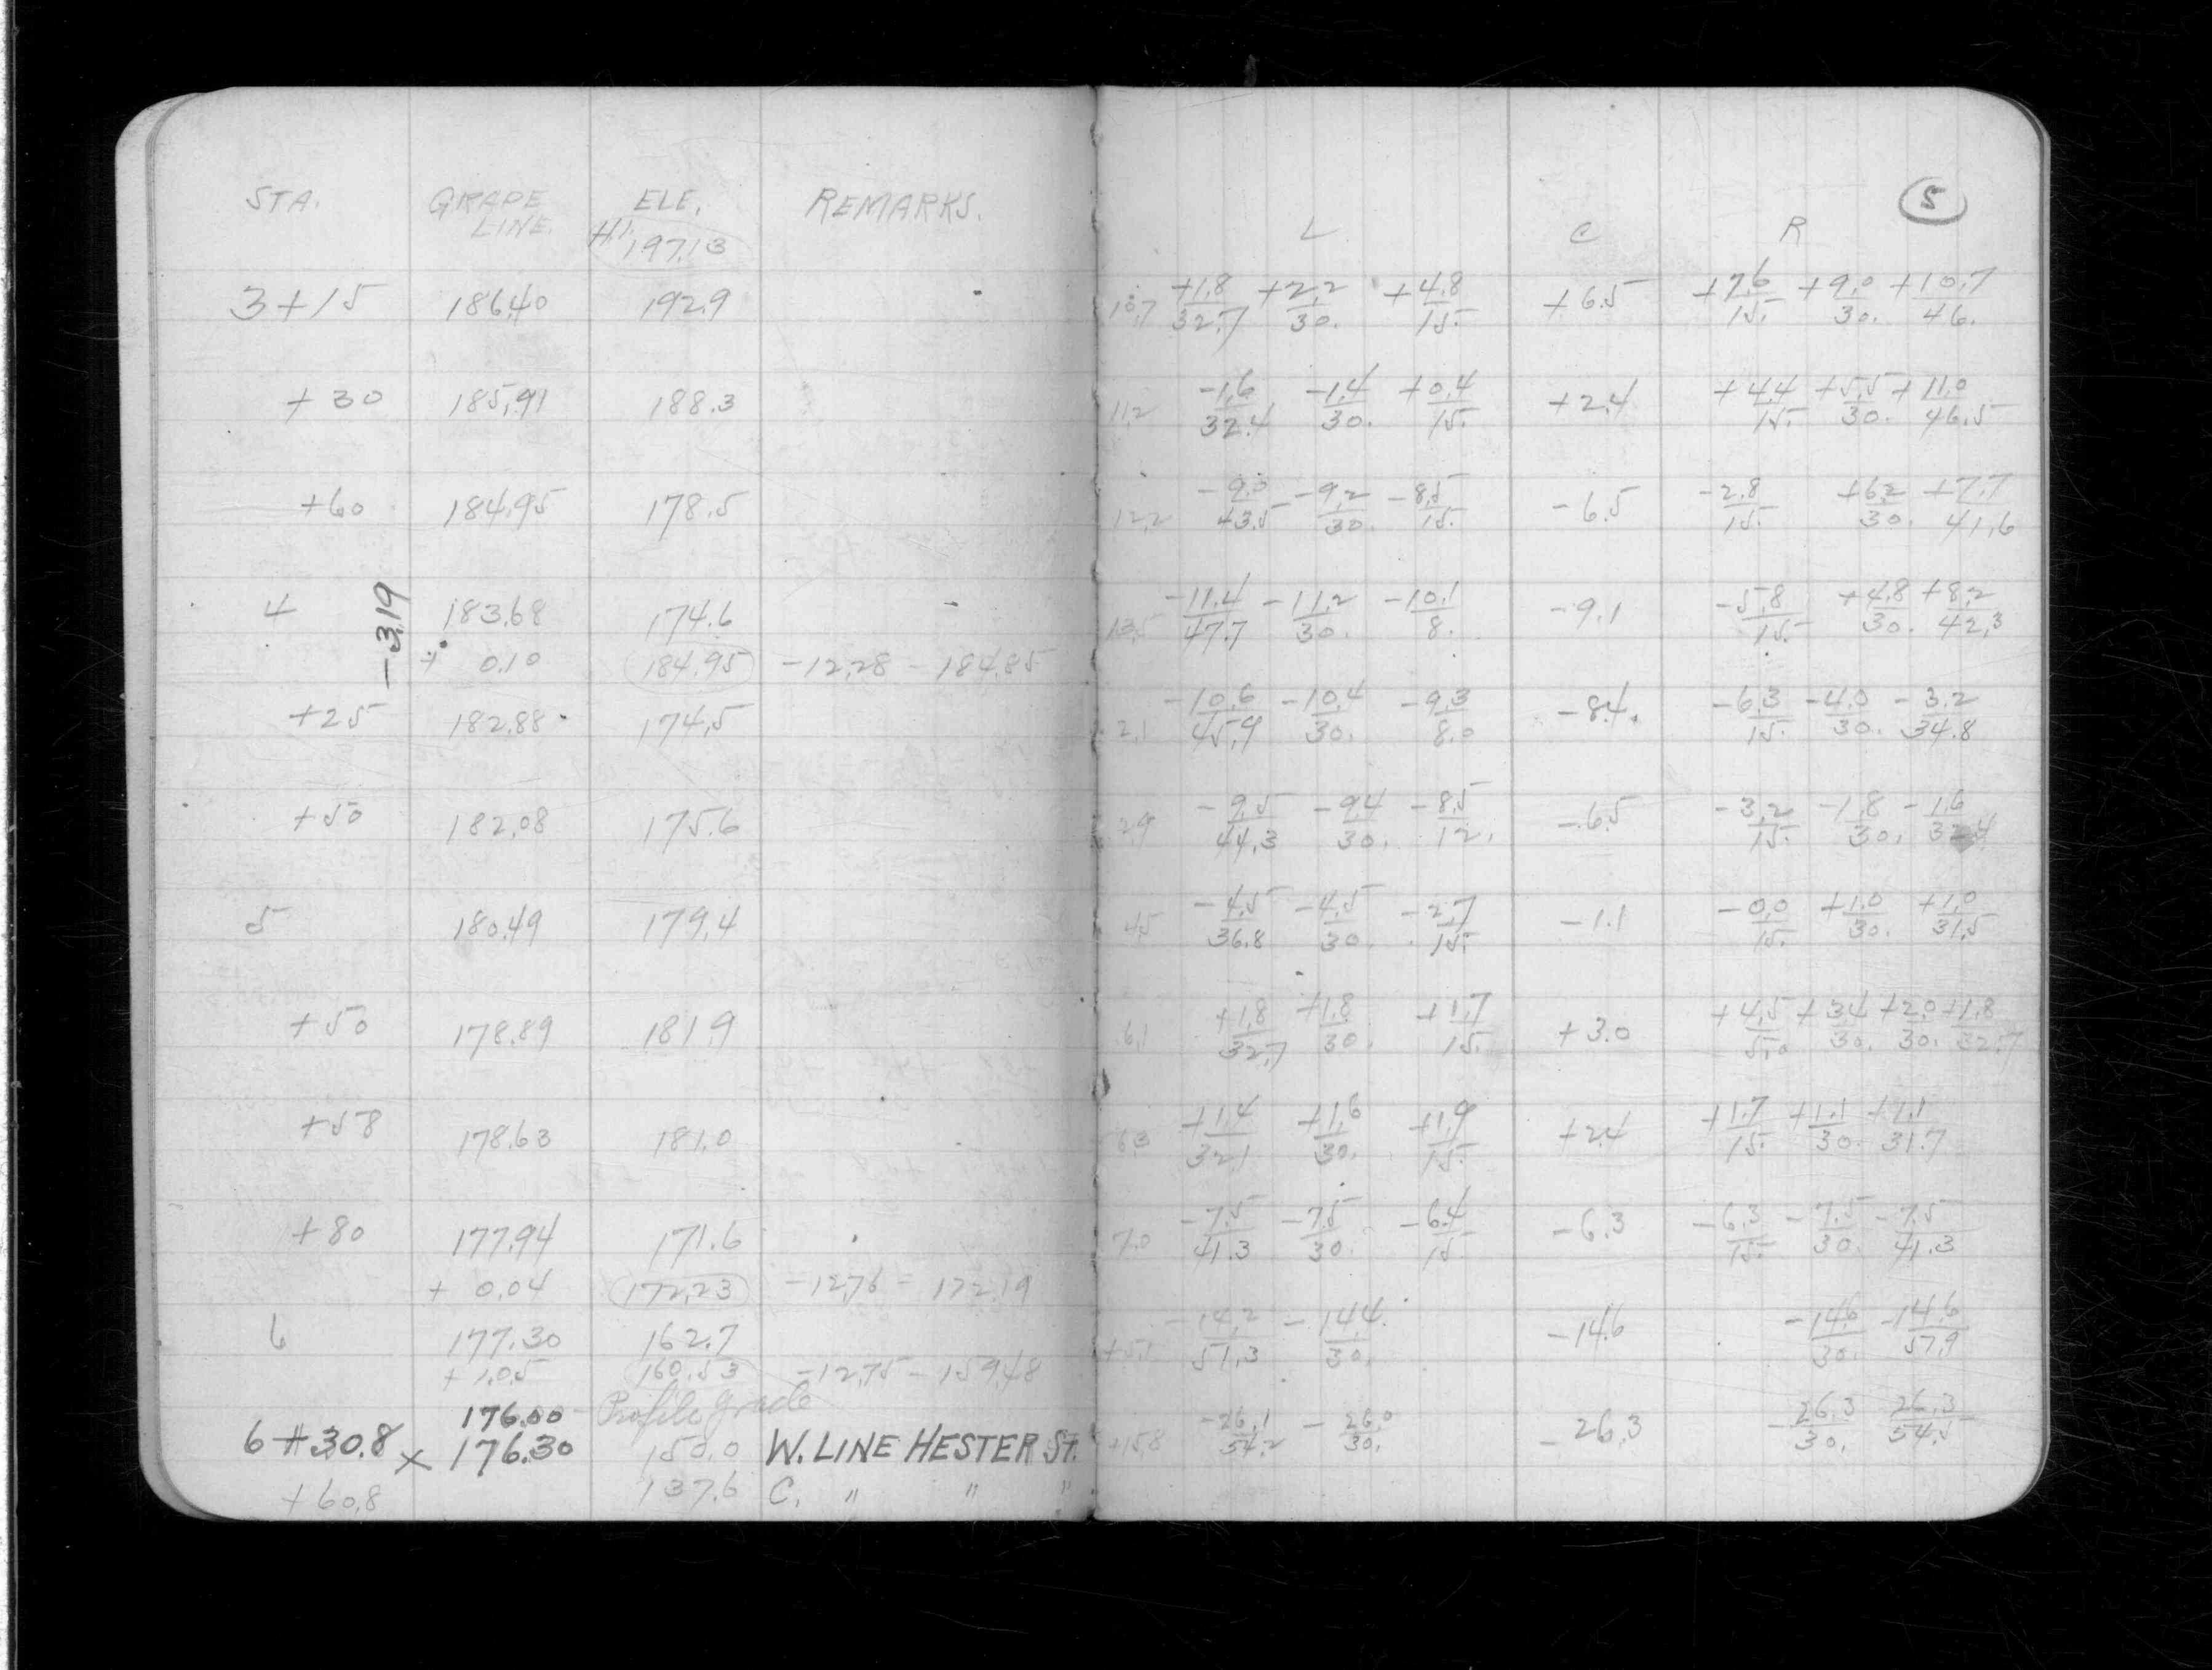 STA. GRADE LINE. ELE. REMARKS. L C R 5
H.I. 197.13
3+15 186.40 192.9 10.7 +1.8/32.7 +2.2/30. +4.8/15. +6.5 +7.6/15. +9.0/30. +10.7/46.
+30 185.91 188.3 11.2 -1.6/32.4 -1.4/30. +0.4/15. +2.4 +4.4/15. +5.5/30. +11.0/46.5
+60 184.95 178.5 12.2 -9.0/43.5 -9.2/30. -8.5/15. -6.5 -2.8/15. +6.2/30. +7.7/41.6
-3.19
4 183.68 174.6 13.5 -11.4/47.7 -11.2/30. -10.1/8. -9.1 -5.8/15. +4.8/30. +8.2/42.3
+ 0.10 184.95 -12.28 - 184.85
+25 182.88 174.5 2.1 -10.6/45.9 -10.4/30. -9.3/8.0 -8.4 -6.3/15. -4.0/30. -3.2/34.8
+50 182.08 175.6 2.9 -9.5/44.3 -9.4/30. -8.5/12. -6.5 -3.2/15. -1.8/30. -1.6/32.4
5 180.49 179.4 4.5 -4.5/36.8 -4.5/30. -2.7/15. -1.1 -0.0/15. +1.0/30. +1.0/31.5
+50 178.89 181.9 6.1 +1.8/32.7 +1.8/30. +1.7/15. +3.0 +4.5/5.0 +3.4/30. +2.0/30. +1.8/32.7
+58 178.63 181.0 6.3 +1.4/32.1 +1.6/30. +1.9/15. +2.4 +1.7/15. +1.1/30. +1.1/31.7
+80 177.94 171.6 7.0 -7.5/41.3 -7.5/30. -6.4/15. -6.3 -6.3/15. -7.5/30. -7.5/41.3
+ 0.04 172.23 -12.76 - 172.19
6 177.30 162.7 -14.2/51.3 -14.4/30. -14.6 -14.6/30. -14.6/57.9
+ 1.05 160.53 -12.75 - 159.48
176.00 - Profile grade
6+30.8 x 176.30 150.0 W. LINE HESTER ST. +15.8 -26.1/54.2 -26.0/30. -26.3 -26.3/30. 26.3/54.5
+60.8 137.6 C. " " "